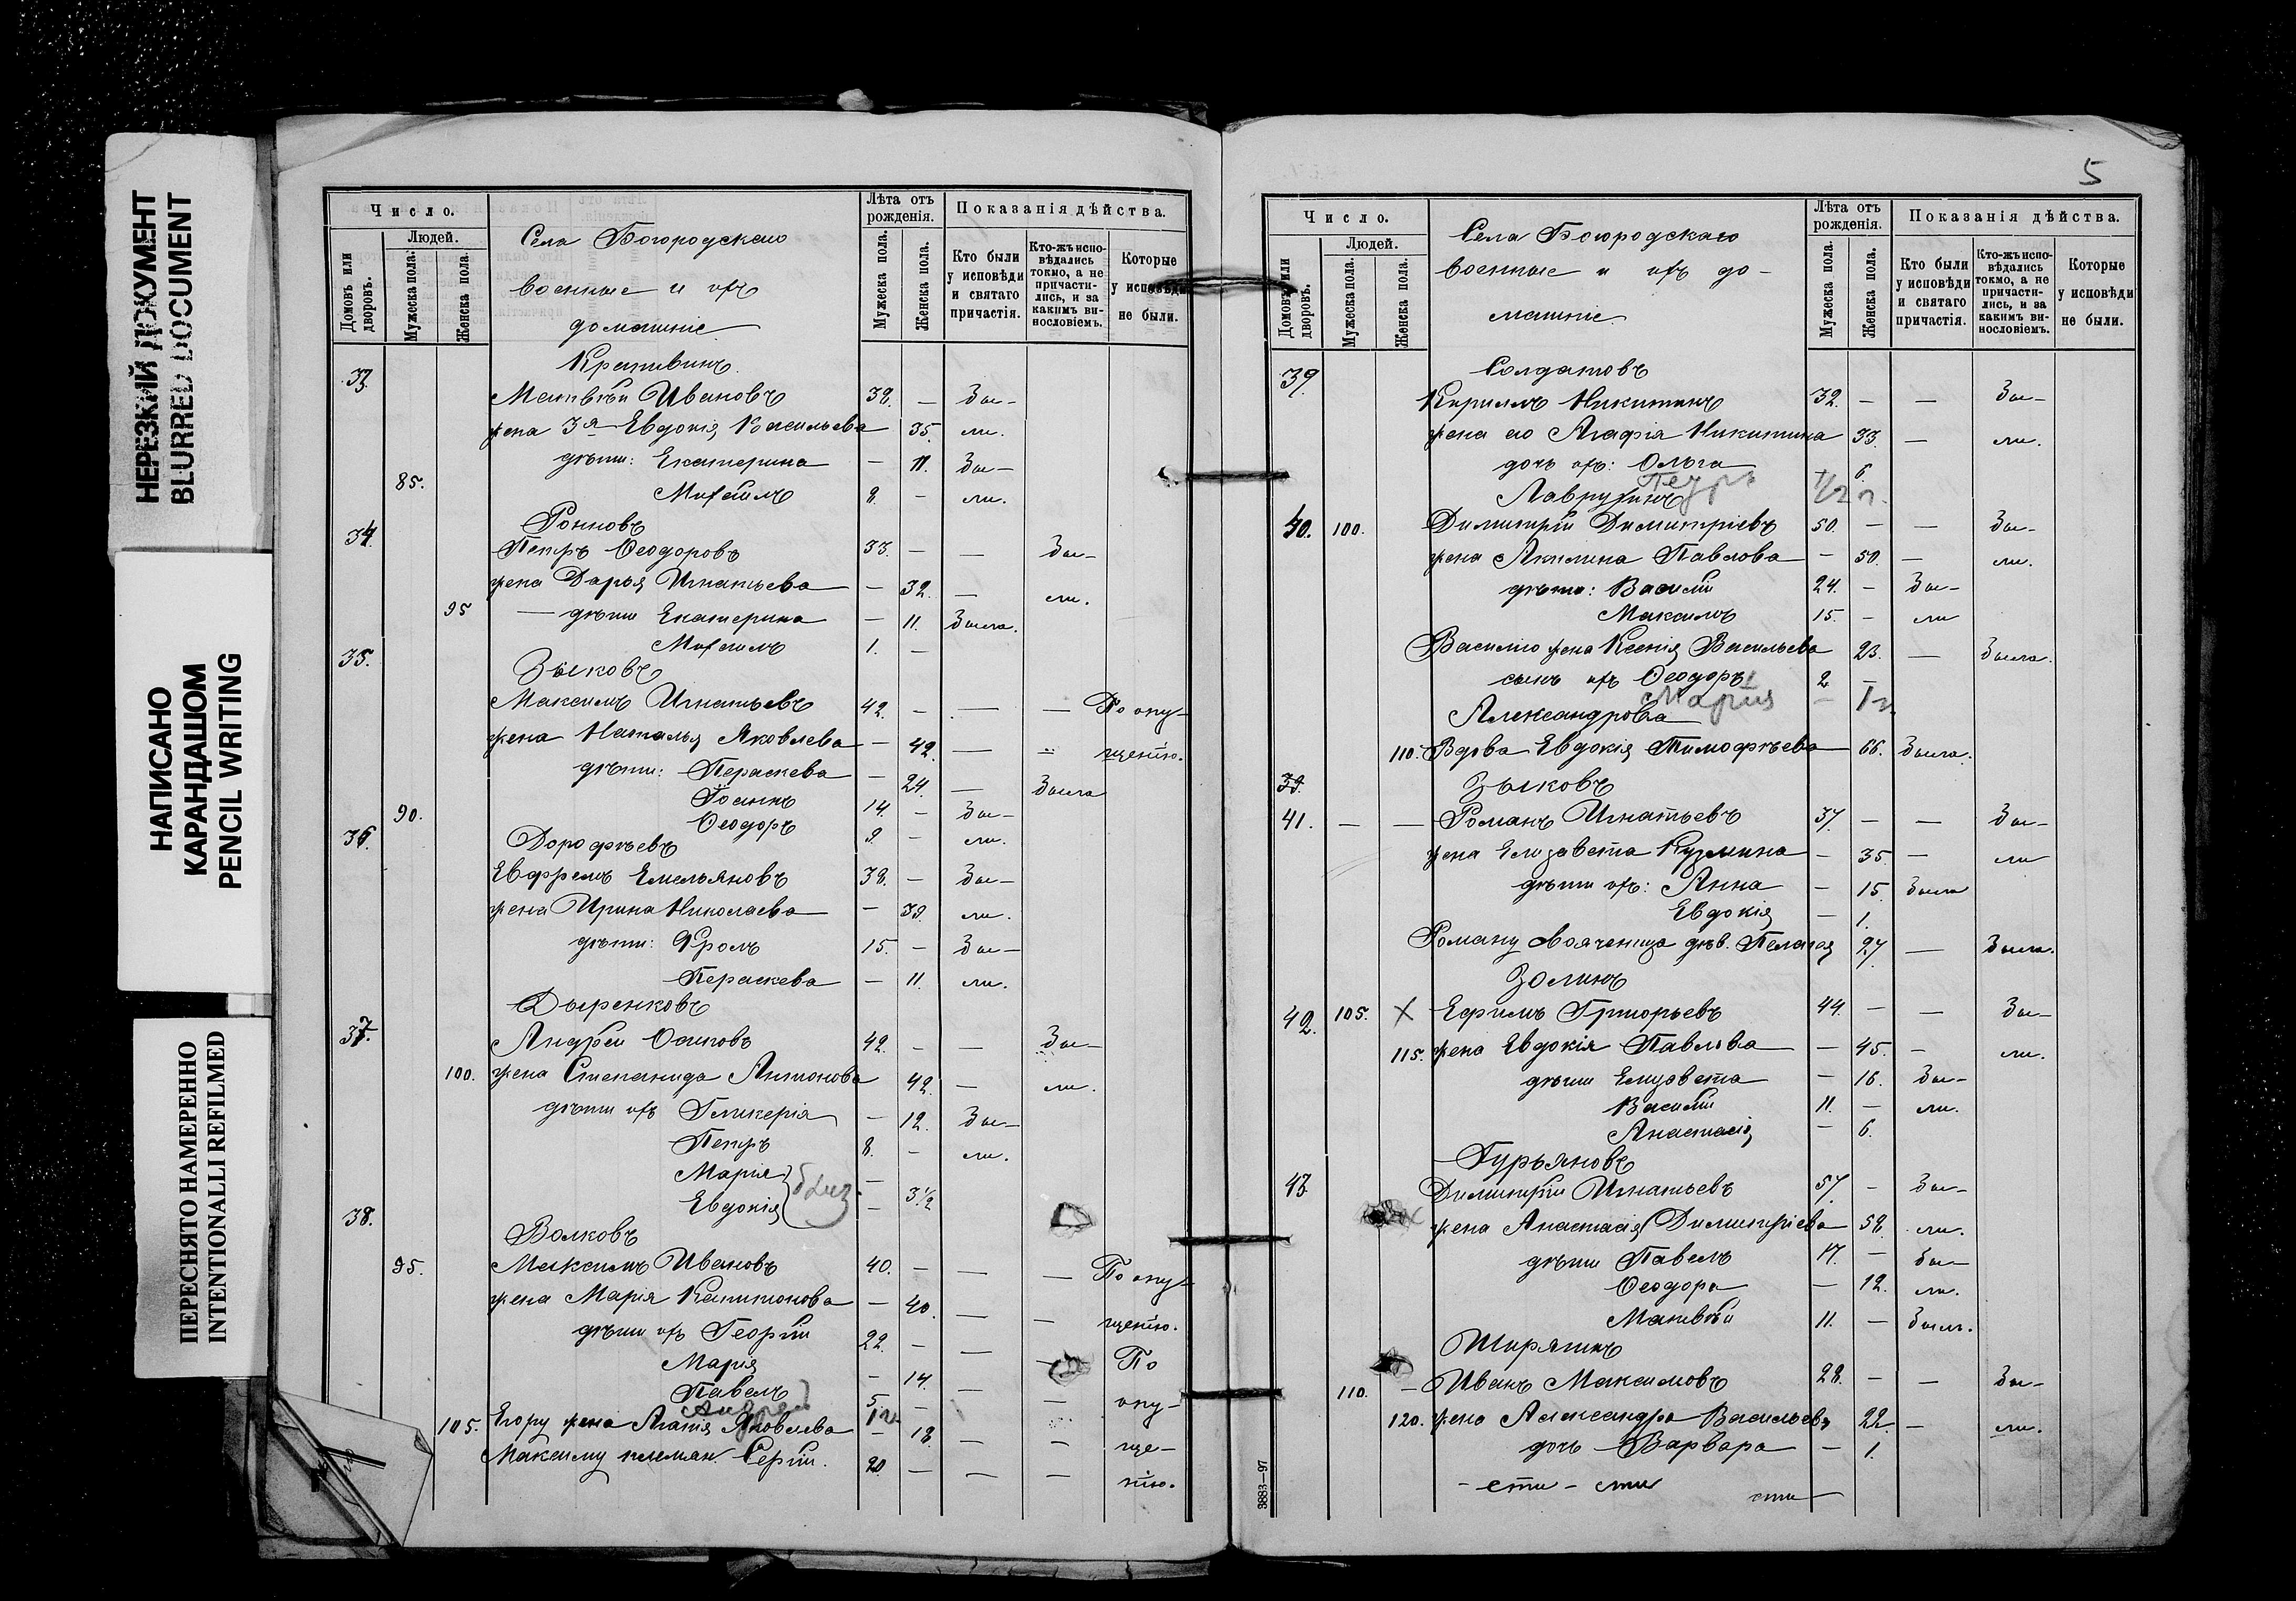 НЕРЕЗКИЙ ДОКУМЕНТ
BLURRED DOCUMENT
НАПИСАНО
КАРАНДАШОМ
PENCIL WRITING
ПЕРЕСНЯТО НАМЕРЕННО
INTENTIONALLI REFILMED
Число.
Людей.
Домовъ или дворовъ.
Мужеска пола.
Женска пола.
Села Богородскаго
военные и ихъ
домашніе
Лѣта отъ рожденія.
Мужеска пола.
Женска пола.
Показанія дѣйства.
Кто были у исповѣди и святаго причастія.
Кто-жъ исповѣдались токмо, а не причастились, и за какимъ винословіемъ.
Которые у исповѣди не были.
33. Крапивинъ
Матвѣй Ивановъ 38. — Бы-
жена 3я Евдокія Васильева 35. ли.
дѣти: Екатерина — 11. Бы-
85. Михаилъ 8. — ли.
34. Ронновъ
Петръ Ѳеодоровъ 33. — — Бы-
жена Дарья Игнатьева — 32. — ли.
95 — дѣти Екатерина — 11. Была.
Михаилъ 1. —
35. Зыковъ
Максимъ Игнатьевъ 42. — — — По опу-
жена Наталья Яковлева — 42. — — щенію.
дѣти: Параскева — 24. — Была
Іоаннъ 14. — Бы-
90. Ѳеодоръ 9. — ли.
36. Дорофѣевъ
Евфремъ Емельяновъ 38. — Бы-
жена Ирина Николаева — 39. ли.
дѣти: Фролъ 15. — Бы-
Параскева — 11. ли.
37. Дыренковъ
Андрей Осиповъ 42. — — Бы-
100. жена Степанида Антонова 42. — ли.
дѣти ихъ Гликерія — 12. Бы-
Петръ 8. — ли.
Марія —
Евдокія — 3½ близ.
38. Волковъ
95. Максимъ Ивановъ 40. — — — По опу-
жена Марія Капитонова — 40. — — щенію.
дѣти ихъ Георгій 22. — — По
Марія — 14. —
Павелъ 5. — — опу-
Андрей 1 г
105. Егору жена Агапія Яковлева — 18. — — ще-
Максиму племян. Сергій. 20. — — — нію.
5
Число.
Людей.
Домовъ или дворовъ.
Мужеска пола.
Женска пола.
Села Богородскаго
военные и ихъ до-
машніе.
Лѣта отъ рожденія.
Мужеска пола.
Женска пола.
Показанія дѣйства.
Кто были у исповѣди и святаго причастія.
Кто-жъ исповѣдались токмо, а не причастились, и за какимъ винословіемъ.
Которые у исповѣди не были.
39. Солдатовъ
Кириллъ Никитинъ 32. — — Бы-
жена его Агафія Никитина 33. — ли.
дочь ихъ: Ольга 6.
Петръ 1/2 г.
Лаврухинъ
40. 100. Димитрій Димитріевъ 50. — — Бы-
жена Акилина Павлова — 50. — ли.
дѣти: Василій 24. — Бы-
Максимъ 15. — ли
Василію жена Ксенія Васильева 23. — Была.
сынъ ихъ Ѳеодоръ 2 —
Марія — 1 г.
Александрова
110. Вдова Евдокія Тимофѣева 66. Была.
39. Зыковъ
41. — — Романъ Игнатьевъ 37. — — Бы-
жена Елизавета Кузмина — 35 — ли
дѣти ихъ: Анна — 15 Была
Евдокія — 1.
Роману своячница дѣв. Пелагея 27. — Была.
Золинъ
42. 105. X Ефимъ Григорьевъ 44. — — Бы-
115. жена Евдокія Павлова — 45. — ли.
дѣти Елизавета — 16. Бы-
Василій 11. — ли.
Анастасія — 6.
Гурьяновъ
43. Димитрій Игнатьевъ 57. — Бы-
жена Анастасія Димитріева 58. ли.
дѣти Павелъ 17. — Бы-
Ѳеодора — 12. ли.
Матвѣй 11. — Былъ.
Ширягинъ
110. — Иванъ Максимовъ 28. — — Бы-
120. жена Александра Васильева 22. — ли.
дочь Варвара — 1.
- сти - сти
сти
3883—97